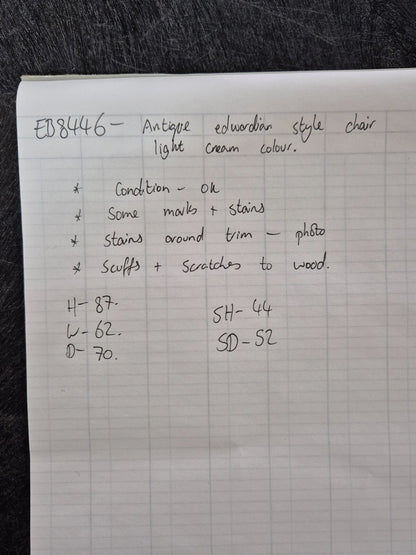 EB8446 - Antique edwardian style chair
light cream colour.
* Condition - ok
* Some marks + stains
* Stains around trim - photo
* Scuffs + scratches to wood.
H - 87.
W - 62.
D - 70.
SH - 44
SD - 52